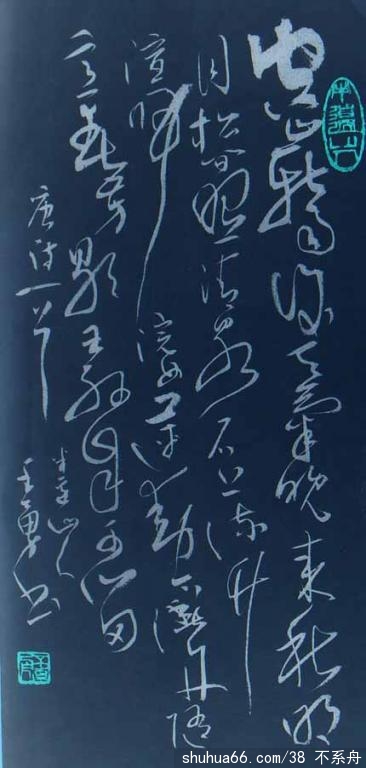 空山新雨後天氣晚来秋明
月松间照清泉石上流竹
喧归浣女莲动下漁舟随
意春芳歇王孙自可留
唐诗一首
山人
勇书
shuhua66.com/38 不系舟